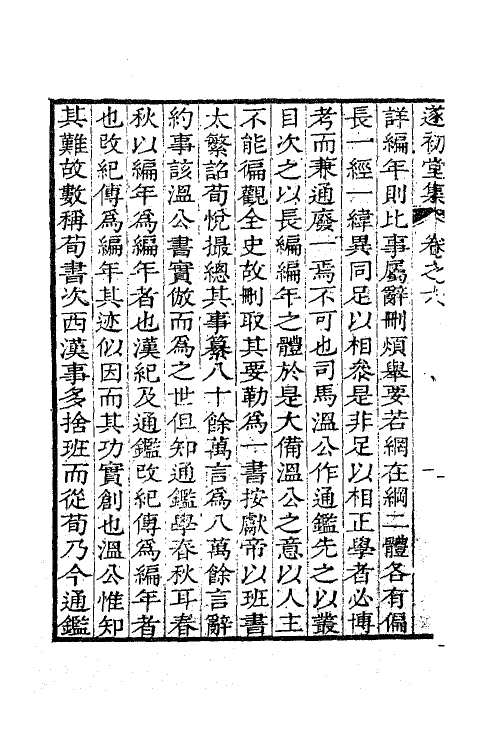 遂初堂集 卷之六
詳編年則比事屬辭刪煩舉要若網在綱二體各有偏
長一經一緯異同足以相叅是非足以相正學者必博
考而兼通廢一焉不可也司馬溫公作通鑑先之以叢
目次之以長編編年之體於是大備溫公之意以人主
不能徧觀全史故刪取其要勒為一書按獻帝以班書
太繁詔荀悅撮總其事纂八十餘萬言為八萬餘言辭
約事該溫公書實倣而為之世但知通鑑學春秋耳春
秋以編年為編年者也漢紀及通鑑改紀傳為編年者
也改紀傳為編年其迹似因而其功實創也溫公惟知
其難故數稱荀書次西漢事多捨班而從荀乃今通鑑